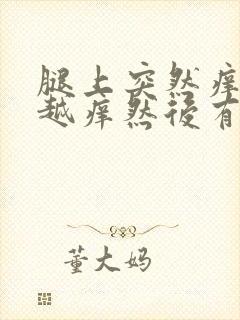 腿上突然痒
越痒然後有
董大妈